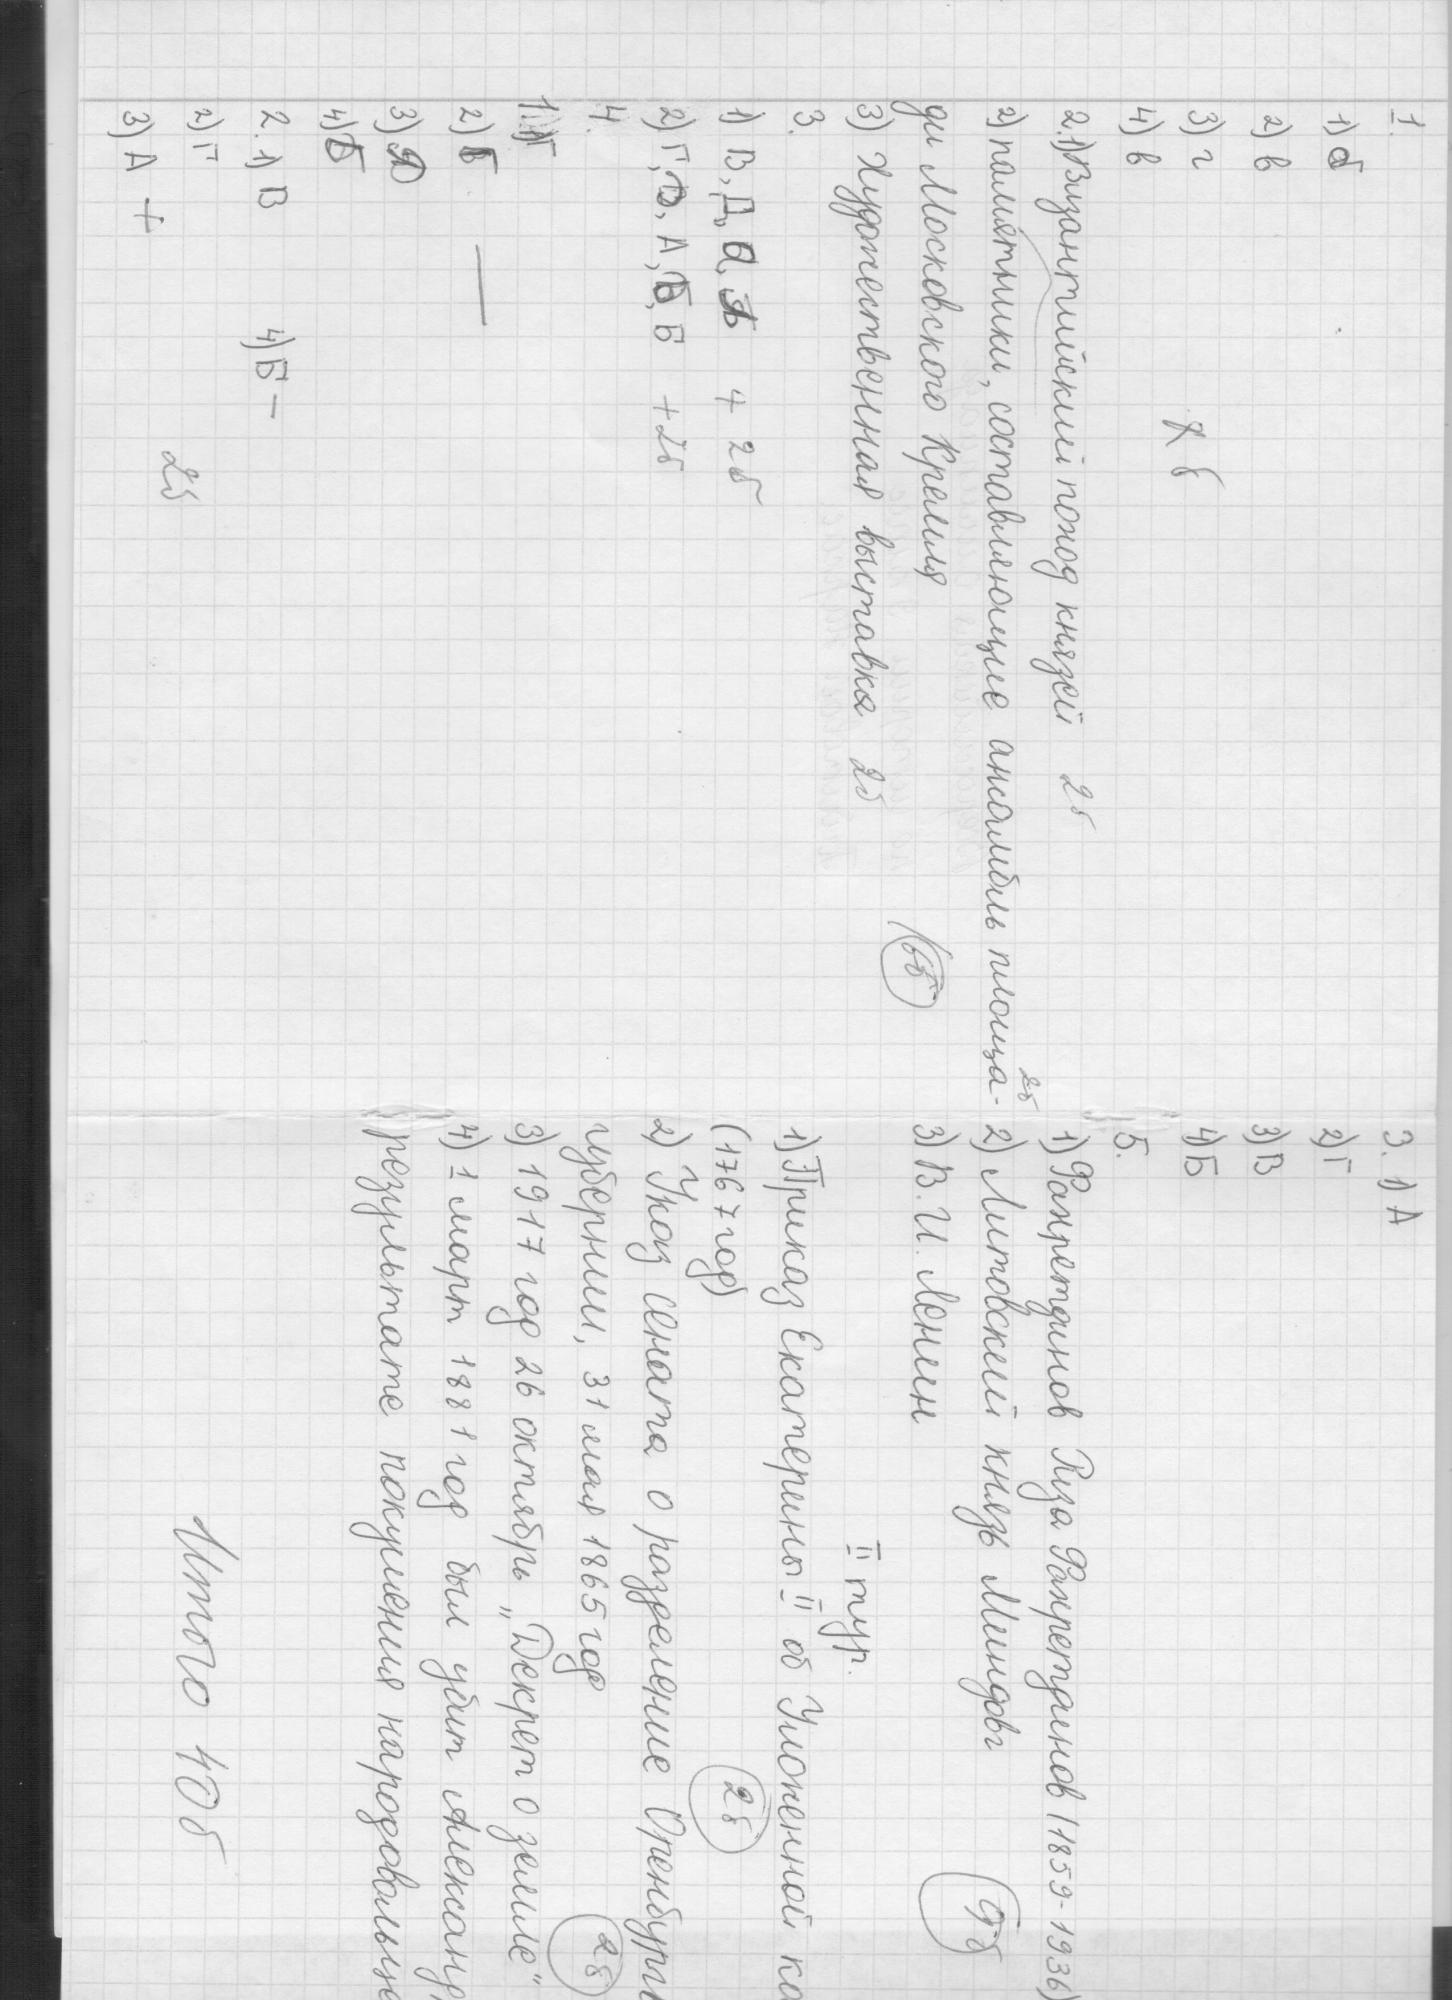 1.
1) б
2) в
3) г
4) в
8 б
2. 1) Византийский поход князей 2б
2) памятники, составляющие ансамбль площа-
ди Московского Кремля 2б
3) Художественная выставка 2б
6б
3.
1) В, Д, А, + 2б
2) Г, В, А, Б +2б
4.
1. 1) Г
2) Б
3) Д
4) Б
2. 1) В 4) Б -
2) Г
3) А + 2б
3. 1) А
2) Г
3) В
4) Б
5.
1) Фахретдинов Риза Фахретдинов (1859-1936)
2) Литовский князь Миндовг
3) В. И. Ленин
9б
II тур.
1) Приказ Екатерины II об Уложенной ко
(1767 год) 2б
2) Указ сената о разделение Оренбургс
губернии, 31 мая 1865 год 2б
3) 1917 год 26 октябрь „Декрет о земле"
4) 1 март 1881 год был убит Александ
результате покушения народовольц
Итого 40б